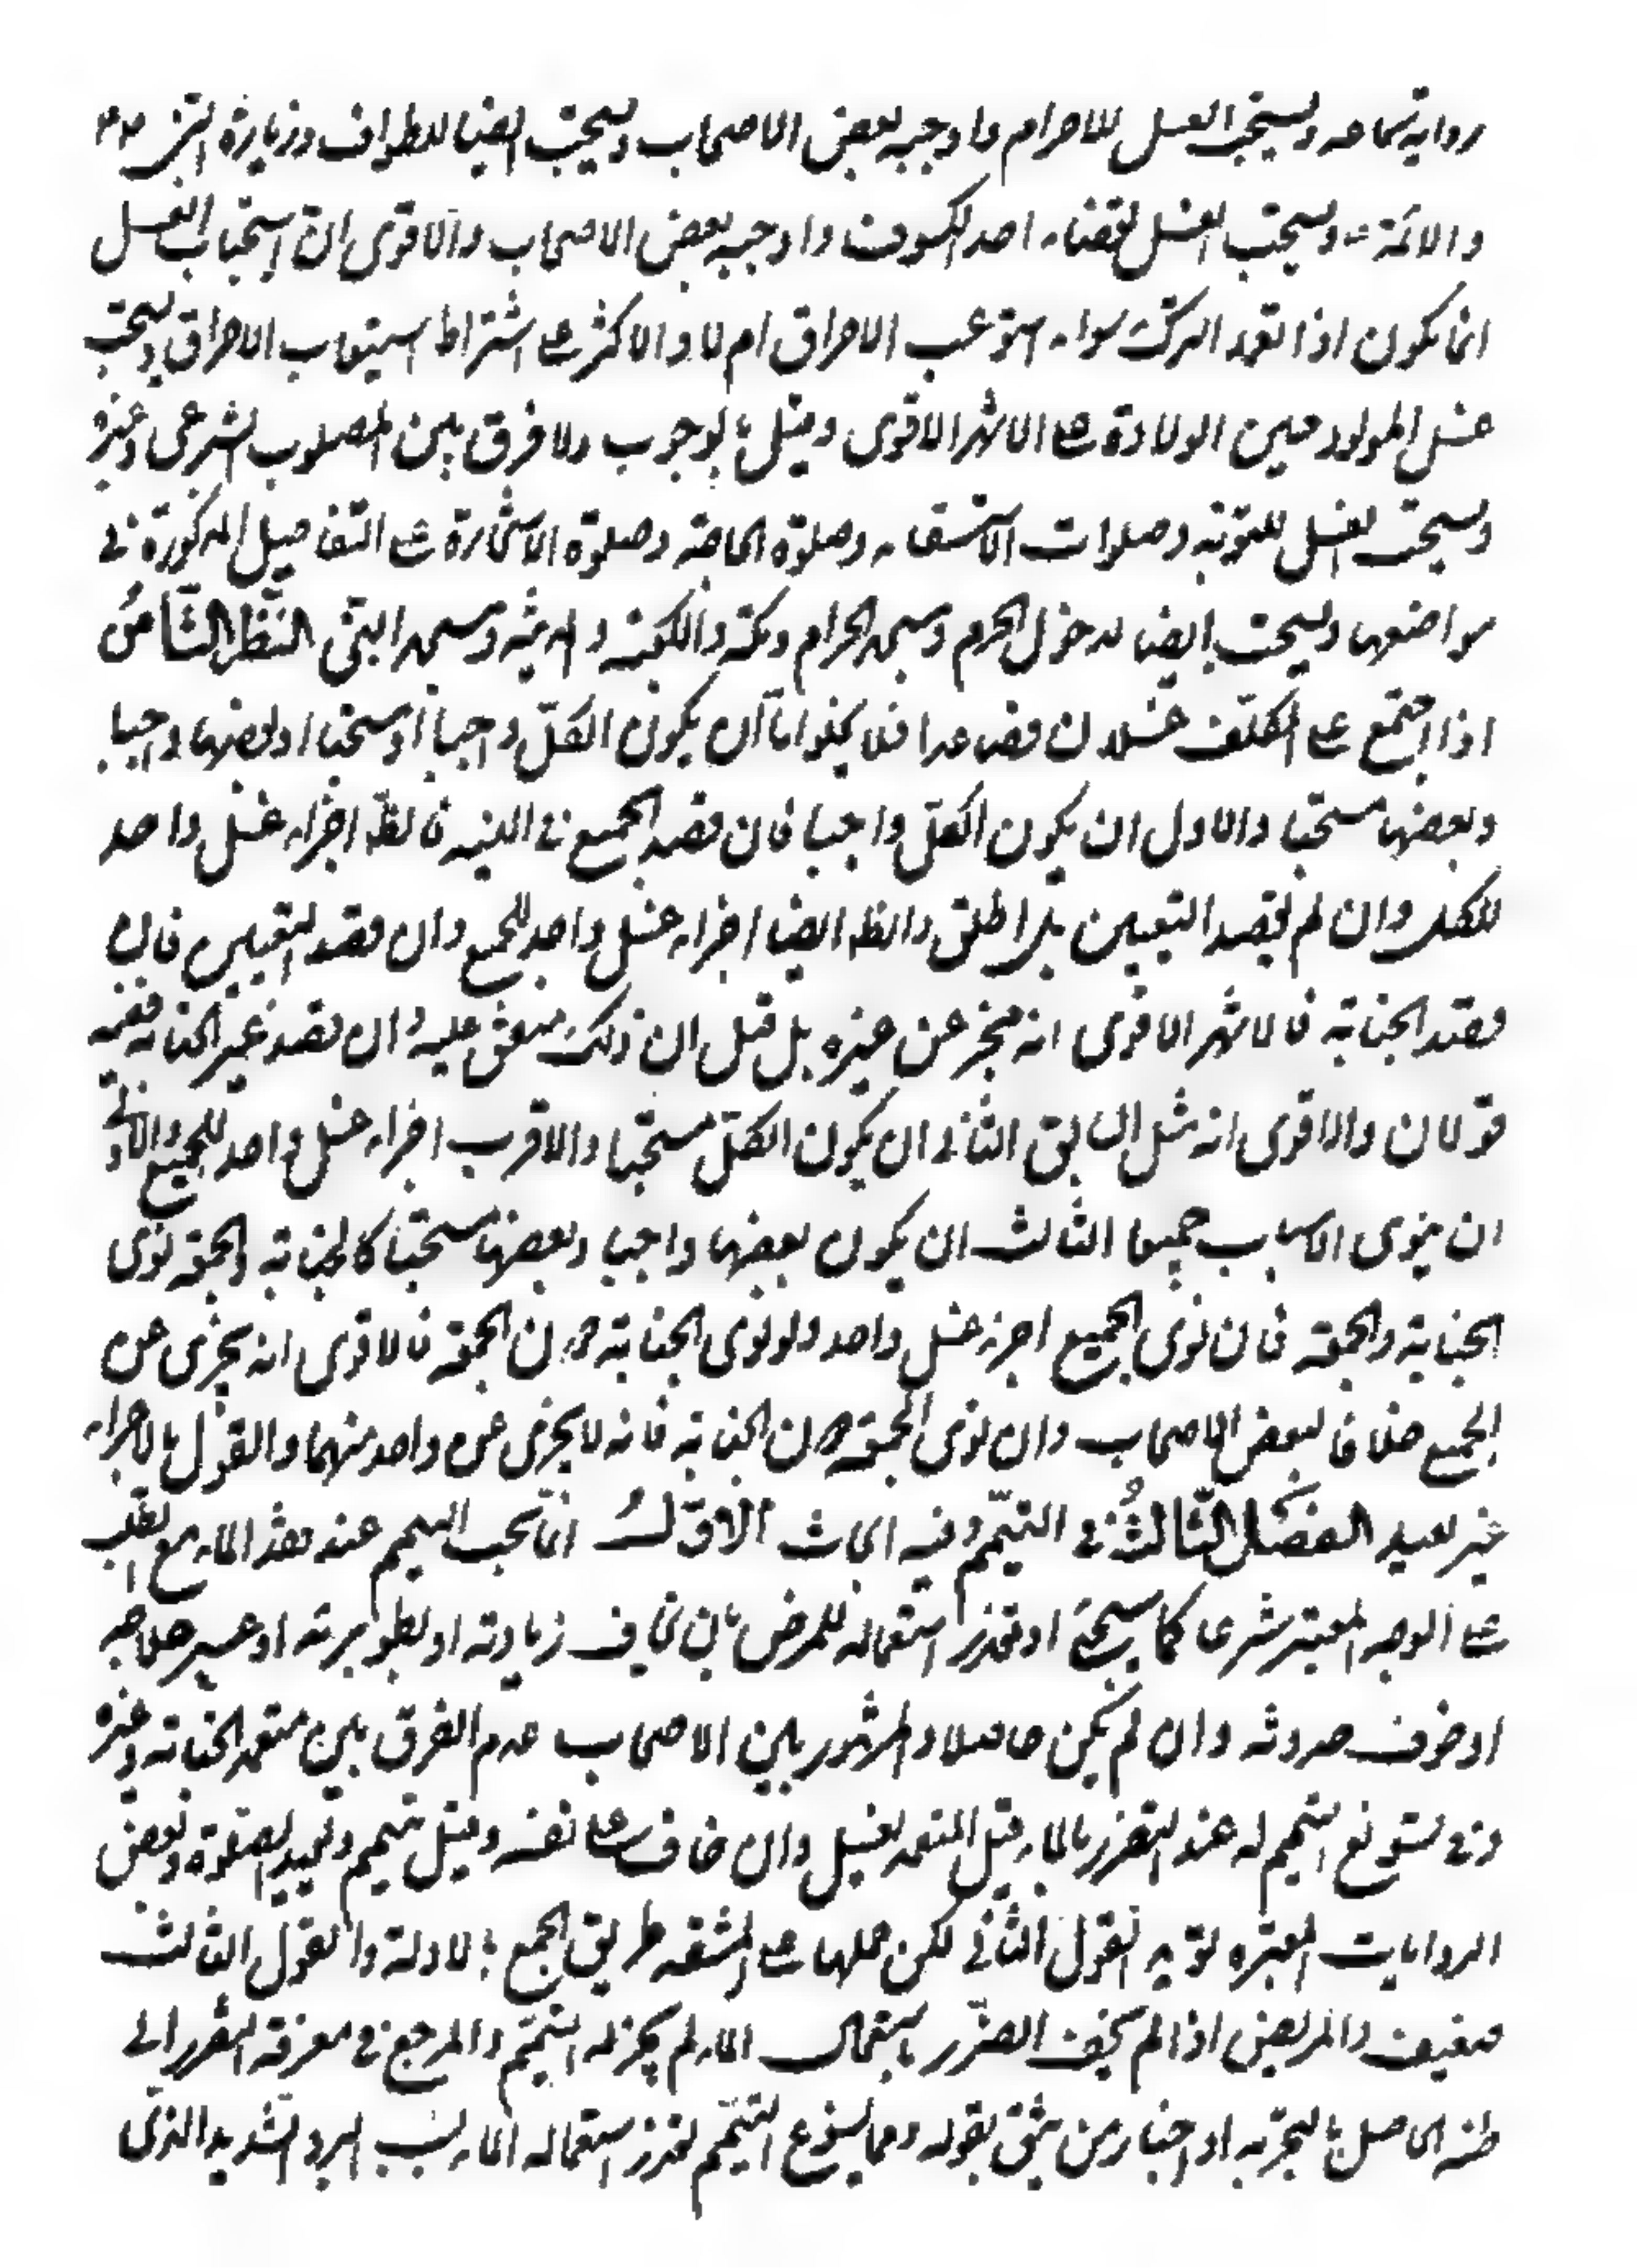 رواية سماعه ويستحب الغسل للاحرام واوجبه بعض الاصحاب ويستحب ايضا للطواف وزيارة النبي
والائمة ع ويستحب الغسل لقضاء احد الكسوف واوجبه بعض الاصحاب والاقوى ان استحباب الغسل
انما يكون اذا تعمد الترك سواء استوعب الاحراق ام لا والاكثر على اشتراط استيعاب الاحراق ويستحب
غسل المولود حين الولادة على الاشهر الاقوى وقيل بالوجوب ولا فرق بين المصلوب الشرعى وغيره
ويستحب الغسل للتوبة وصلوات الاستسقاء وصلوة الحاجة وصلوة الاستخارة على التفاصيل المذكورة فى
مواضعها ويستحب ايضا لدخول الحرم ومسجد الحرام ومكة والكعبة والمدينة ومسجد النبى النَّظَرُ الثَّامنُ
اذا اجتمع على المكلّف غسلان فصاعدا فلا يخلو اما ان يكون الكلّ واجبا او مستحبا او بعضها واجبا
وبعضها مستحبا والاول ان يكون الكلّ واجبا فان قصد الجميع فى النية فالظ اجزاء غسل واحد
للكل وان لم يقصد التعيين بل اطلق والظ ايضا اجزاء غسل واحد للجميع وان قصد التعيين فان
قصد الجنابة فالاشهر الاقوى انه مجز عن غيره بل قيل ان ذلك متفق عليه وان قصد غير الجنابة ففيه
قولان والاقوى انه مثل السابق الثانى ان يكون الكلّ مستحبا والاقرب اجزاء غسل واحد للجميع والاولى
ان ينوى الاسباب جميعا الثالث ان يكون بعضها واجبا وبعضها مستحبا كالجنابة والجمعة نوى
الجنابة والجمعة فان نوى الجميع اجزئه غسل واحد ولو نوى الجنابة دون الجمعة فالاقوى انه يجزى عن
الجميع خلافا لبعض الاصحاب وان نوى الجمعة دون الجنابة فانه لا يجزى عن واحد منهما والقول بالاجزاء
غير بعيد الفَصْلُ الثّالثُ فى التيمّم وفيه ابحاث الاوّلُ انما يجب التيمم عند فقد الماء مع الطلب
على الوجه المعتبر شرعا كما سيجئ او تعذر استعماله للمرض بان يخاف زيادته او بطوء برئه او عسر علاجه
او خوف حدوثه وان لم يكن حاصلا والمشهور بين الاصحاب عدم الفرق بين متعمد الجنابة وغيره
فى تسويغ التيمم له عند التضرر بالماء وقيل المتعمد يغتسل وان خاف على نفسه وقيل يتيمم ويعيد الصلوة وبعض
الروايات المعتبره تؤيد القول الثانى لكن حملها على المشقه طريق الجمع بالادلة والقول الثالث
ضعيف والمريض اذا لم يخف الضّرر باستعمال الماء لم يجز له التيمّم والمرجع فى معرفة الضرر الى
ظنه الحاصل بالتجربه او اخبار من يثق بقوله ومما يسوغ التيمّم تعذر استعماله الماء بسبب البرد الشديد الذى